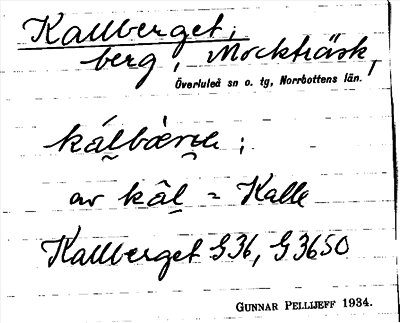 Kallberget;
berg, Mockträsk,
Överluleå sn o. tg, Norrbottens län.
av kâl̰ = Kalle
Kallberget G36, G3650
GUNNAR PELLIJEFF 1934.